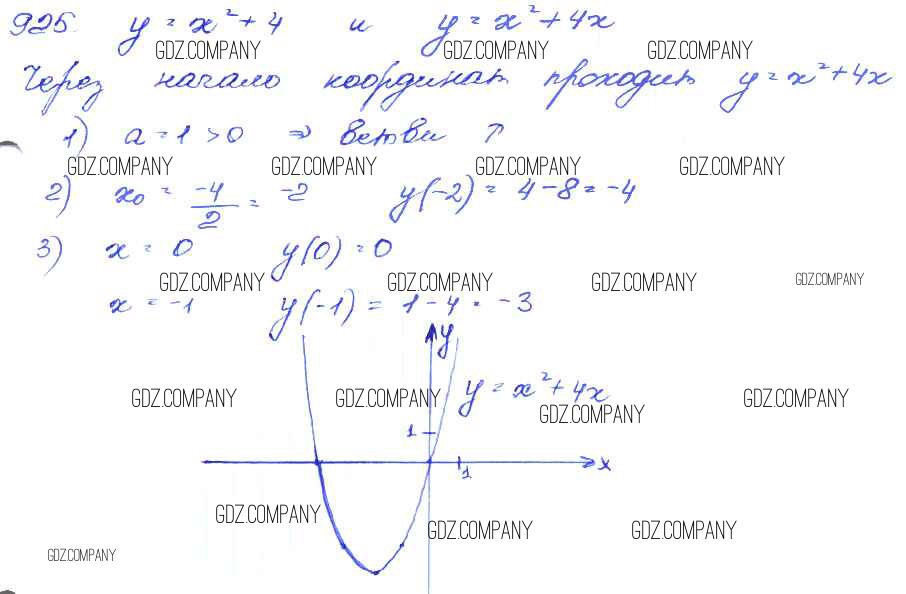 925. y = x² + 4 и y = x² + 4x
GDZ.COMPANY GDZ.COMPANY GDZ.COMPANY
Через начало координат проходит y = x² + 4x
1) a = 1 > 0 ⇒ ветви ↑
GDZ.COMPANY GDZ.COMPANY GDZ.COMPANY GDZ.COMPANY
2) x₀ = -4/2 = -2 y(-2) = 4 - 8 = -4
3) x = 0 y(0) = 0
GDZ.COMPANY GDZ.COMPANY GDZ.COMPANY GDZ.COMPANY
x = -1 y(-1) = 1 - 4 = -3
y
y = x² + 4x
GDZ.COMPANY GDZ.COMPANY GDZ.COMPANY GDZ.COMPANY
1
1 x
GDZ.COMPANY GDZ.COMPANY GDZ.COMPANY
GDZ.COMPANY